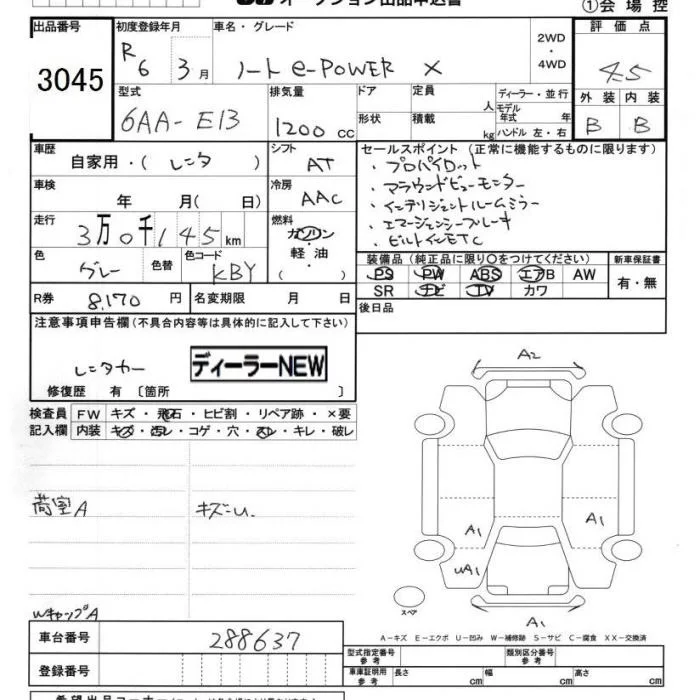 オークション出品申込書
①会場控
出品番号 初度登録年月 車名・グレード 2WD・4WD 評価点
3045 R6 3月 ノート e-POWER X 4.5
型式 排気量 ドア 定員 人 ディーラー・並行 外装 内装
6AA-E13 1200cc 形状 積載 kg モデル年式 年 ハンドル 左・右 B B
車歴 自家用・(レンタ) シフト AT セールスポイント(正常に機能するものに限ります)
・プロパイロット
車検 年 月(日) 冷房 AAC ・アラウンドビューモニター
・インテリジェントルームミラー
走行 3万0千145km 燃料 ガソリン・軽油・( ) ・エマージェンシーブレーキ
・ビルトインETC
色 グレー 色替 色コード KBY 装備品(純正品に限り○をつけてください) 新車保証書
PS PW ABS エアB AW 有・無
R券 8,170円 名変期限 月 日 SR ナビ TV カワ
後日品
注意事項申告欄(不具合内容等は具体的に記入して下さい)
レンタカー ディーラーNEW
修復歴 有〔箇所 〕
検査員 FW キズ・飛石・ヒビ割・リペア跡・×要
記入欄 内装 キズ・汚レ・コゲ・穴・スレ・キレ・破レ
A2
荷室A キズU
A1 A1
UA1
WキャップA スペア A1
A-キズ E-エクボ U-凹み W-補修跡 S-サビ C-腐食 XX-交換済
車台番号 288637
型式指定番号 参考 類別区分番号 参考
登録番号 車庫証明用 参考 長さ cm 幅 cm 高さ cm
希望出品コーナー